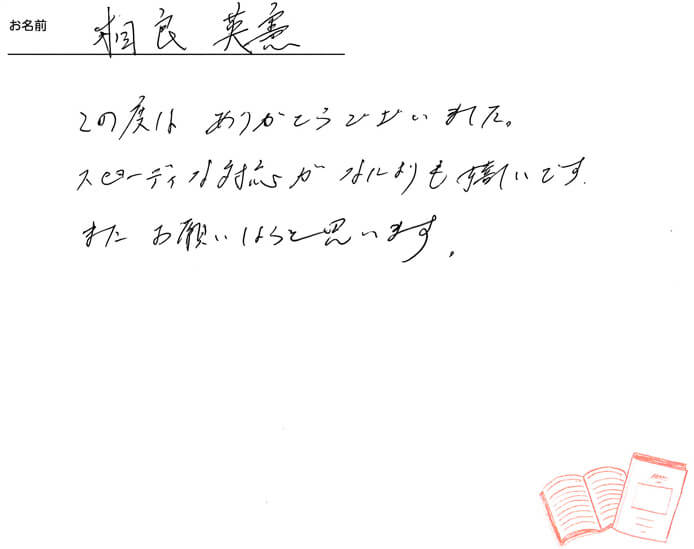 お名前 相良 英憲
この度は ありがとうございました。
スピーディな対応が なによりも嬉しいです.
また お願いしようと思います。